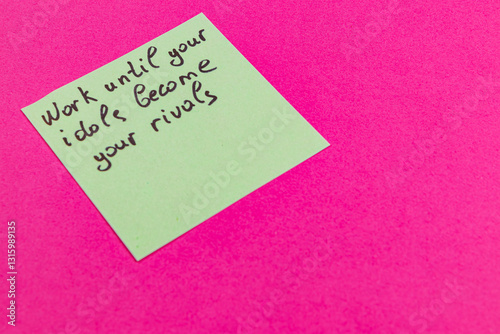 Work until your
idols become
your rivals
Adobe Stock | #1315989135